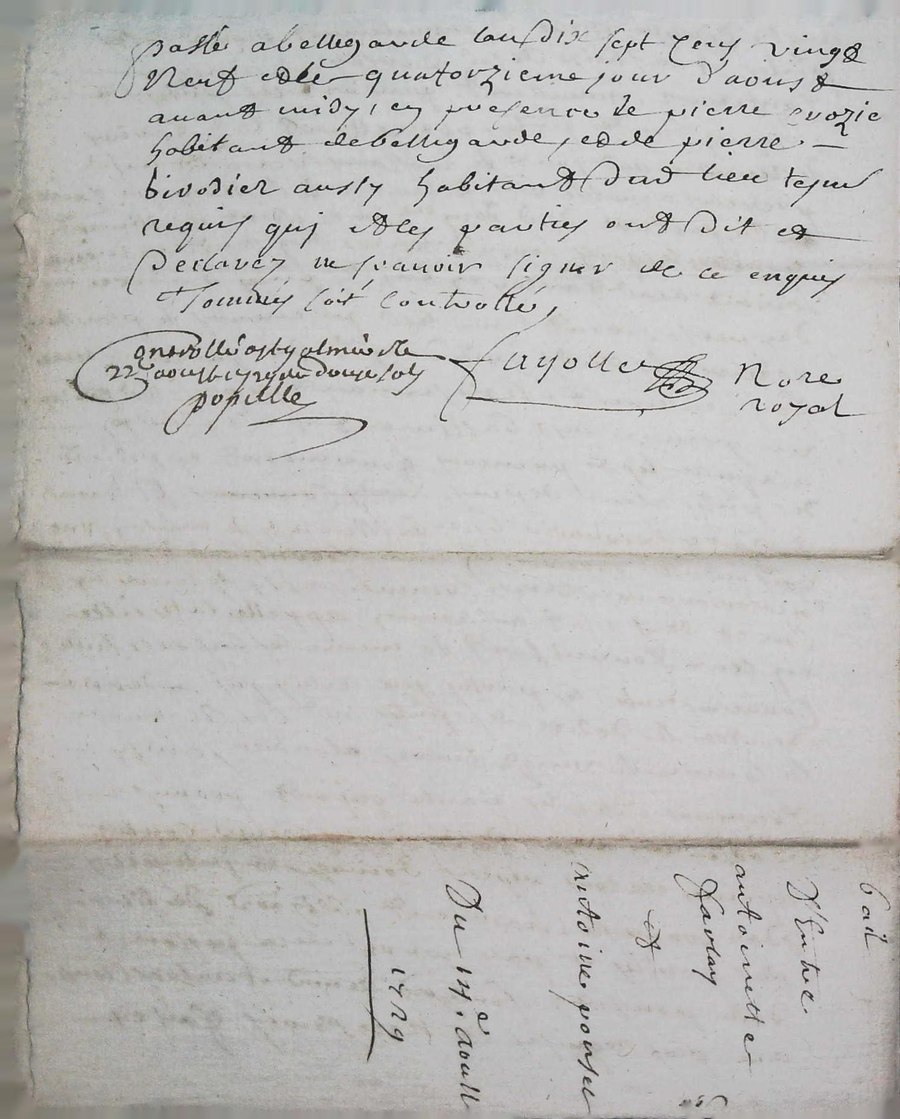 passé a bellegarde lan dix sept cens vingt
neuf et le quatorzieme jour d'aoust
avant midy, en presence de pierre
habitant de bellegarde, et de pierre
birodier aussy habitant dud lieu tesm
requis qui et les parties ont dit et
declarez ne scavoir signer de ce enquis
sommés soit controllé,
controllé a st galmier le
22 aoust 1729 reçu douze sols
popille
fayolle Nore
royal
bail
D'Entre
antoinette
et
antoine ponset
Du 14.e aoust
1729